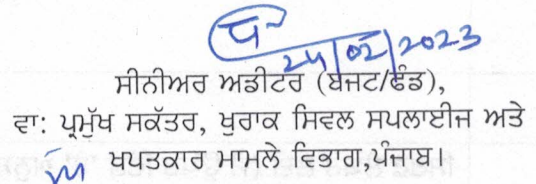 24/02/2023
ਸੀਨੀਅਰ ਅਡੀਟਰ (ਬਜਟ/ਫੰਡ),
ਵਾ: ਪ੍ਰਮੁੱਖ ਸਕੱਤਰ, ਖੁਰਾਕ ਸਿਵਲ ਸਪਲਾਈਜ ਅਤੇ
ਖਪਤਕਾਰ ਮਾਮਲੇ ਵਿਭਾਗ,ਪੰਜਾਬ।